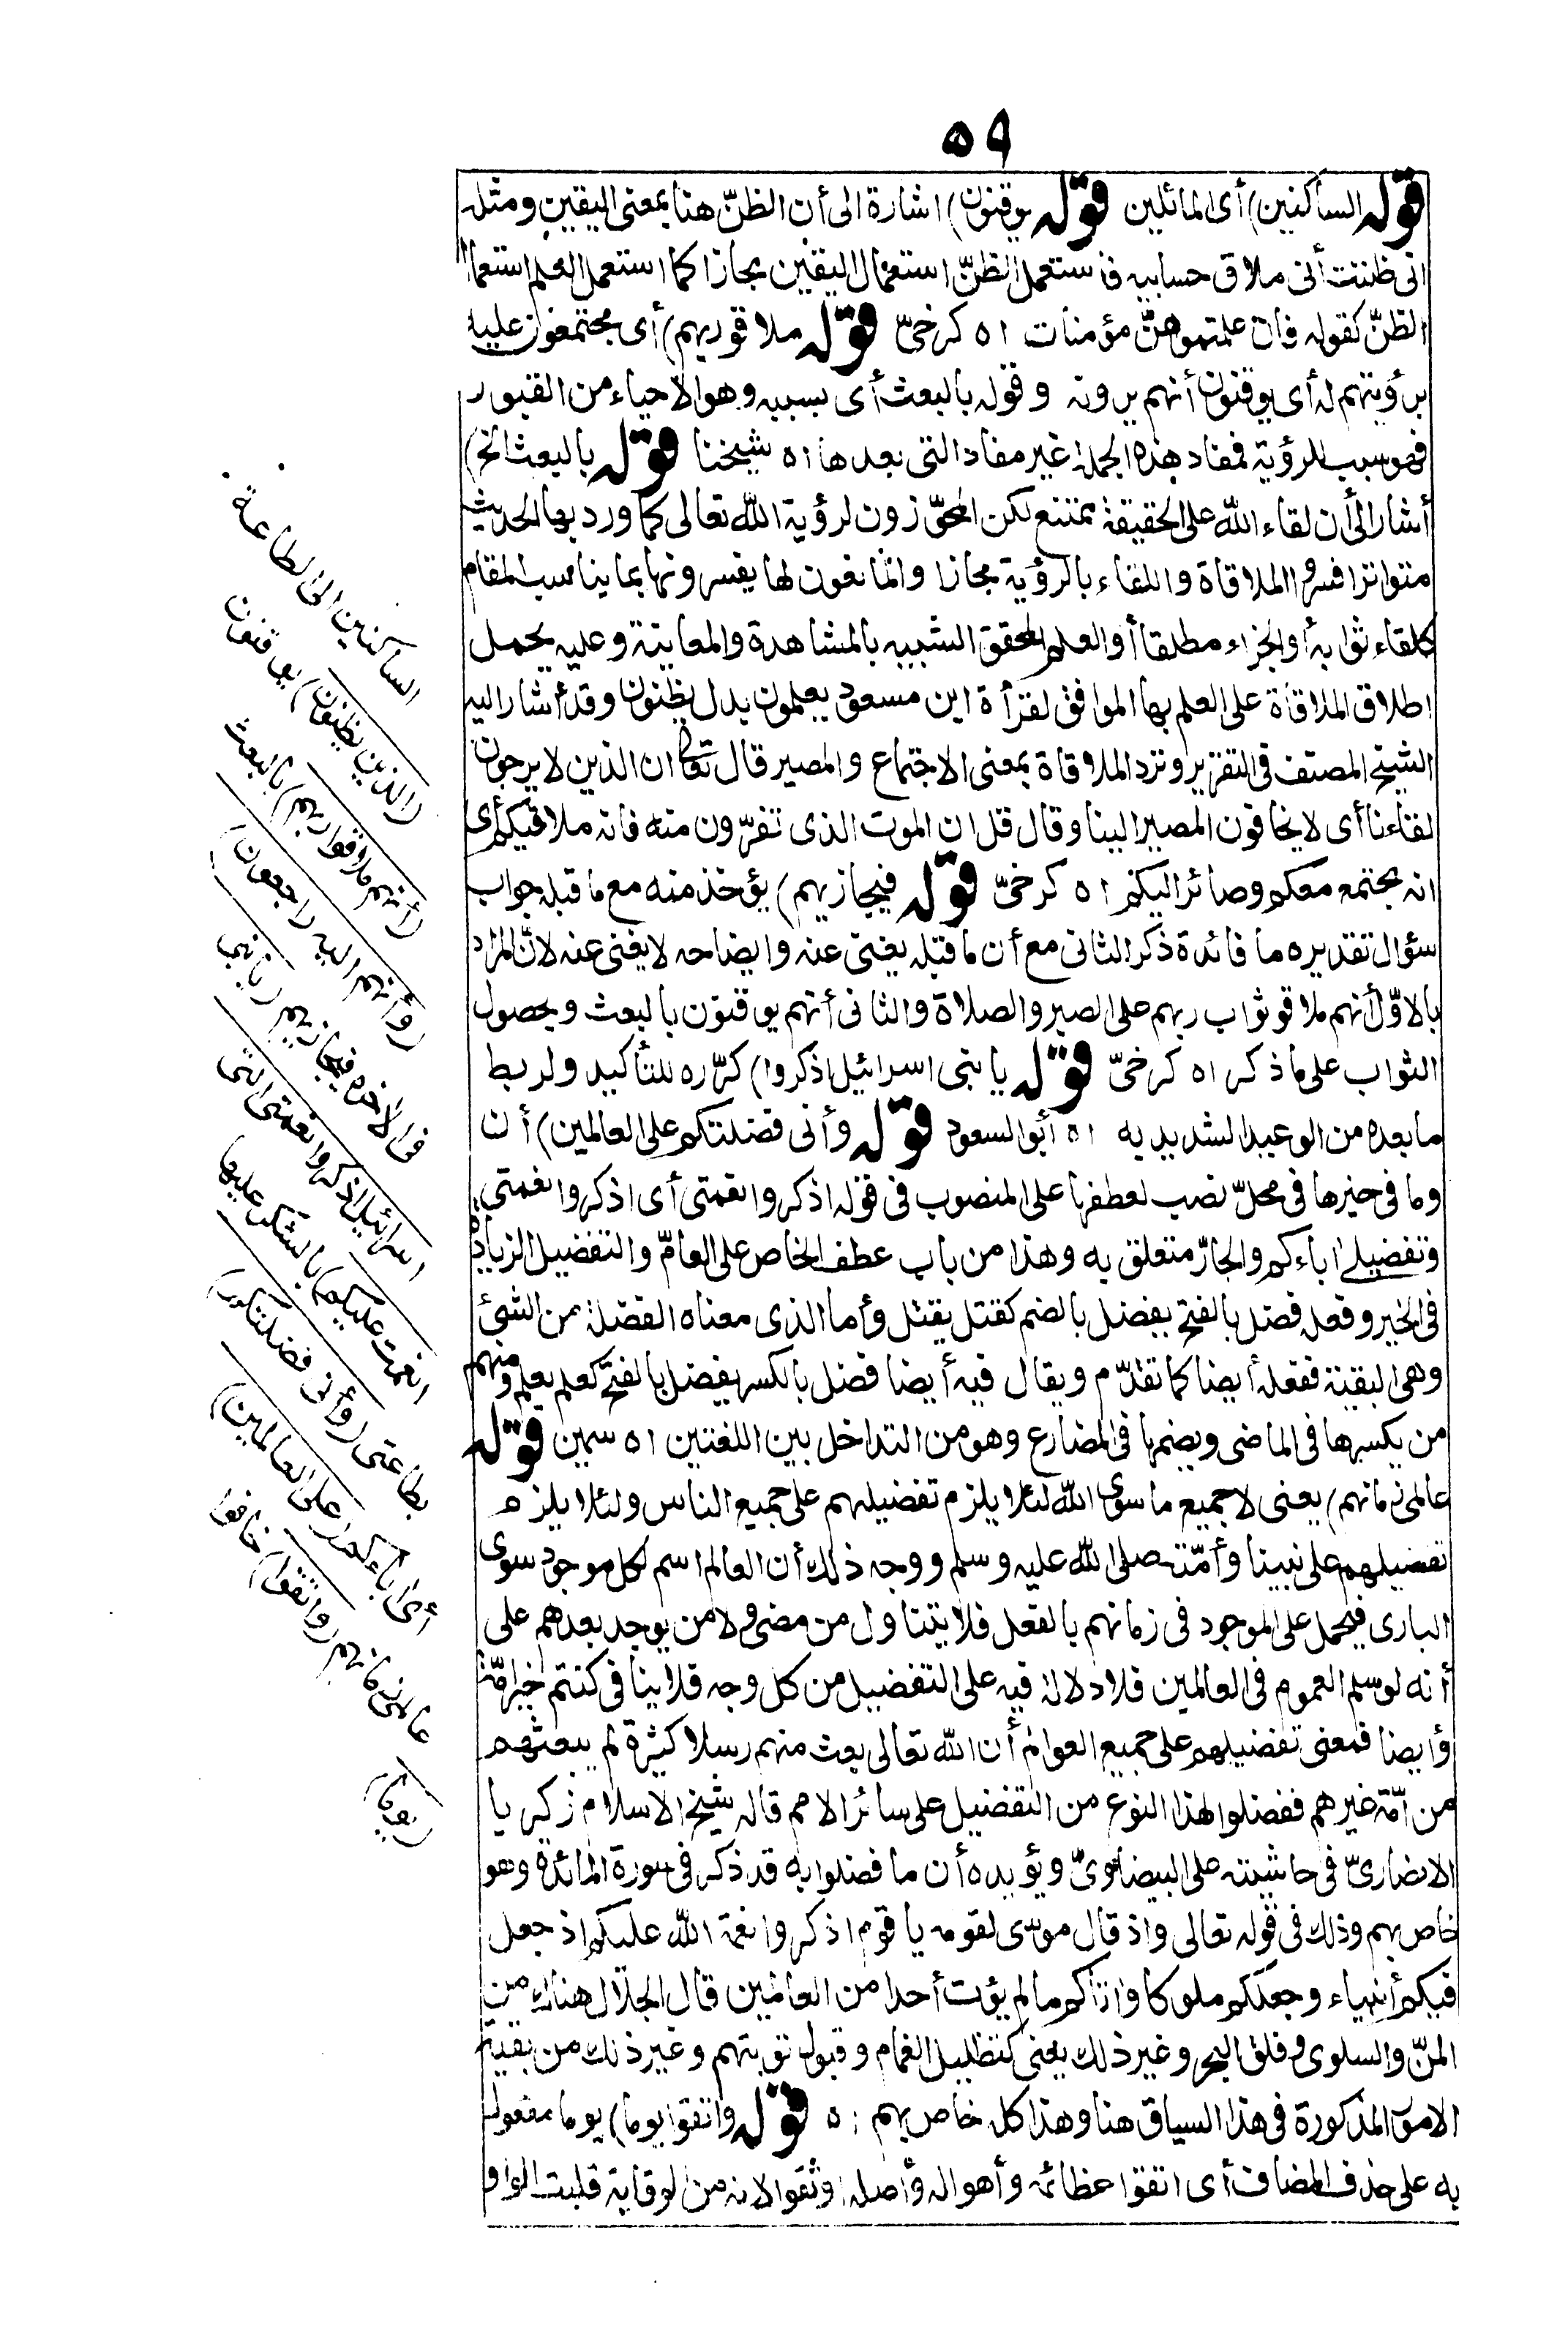 ٥٩
قوله الساكنين) أى المائلين قوله يوقنون) اشارة الى أن الظنّ هنا بمعنى اليقين ومثله
انى ظننت أنى ملاق حسابيه فاستعمل الظنّ استعمال اليقين مجازا كما استعمل العلم استعمال
الظنّ كقوله فان علمتموهنّ مؤمنات اه كرخىّ قوله ملاقوربهم) أى مجتمعون عليه
برؤيتهم له أى يوقنون أنهم يرونه وقوله بالبعث أى بسببه وهو الاحياء من القبور
فهو سبب للرؤية فمفاد هذه الجملة غير مفاد التى بعدها اه شيخنا قوله بالبعث الخ)
أشار الى أن لقاء الله على الحقيقة ممتنع لكن المجوّزون لرؤية الله تعالى كما ورد بها الحديث
متواترا فسروا الملاقاة واللقاء بالرؤية مجازا والمانعون لها يفسرونها بما يناسب المقام
كلقاء ثوابه أو الجزاء مطلقا أو العلم المحقق الشبيه بالمشاهدة والمعاينة وعليه يحمل
اطلاق الملاقاة على العلم بها الموافق لقرأة ابن مسعود يعلمون بدل يظنون وقد أشار اليه
الشيخ المصنف فى التقرير وترد الملاقاة بمعنى الاجتماع والمصير قال تعالى ان الذين لا يرجون
لقاءنا أى لا يخافون المصير الينا وقال قل ان الموت الذى تفرّون منه فانه ملاقيكم أى
انه مجتمع معكم وصائر اليكم اه كرخىّ قوله فيجازيهم) يؤخذ منه مع ما قبله جواب
سؤال تقديره ما فائدة ذكر الثانى مع أن ما قبله يغنى عنه وايضاحه لا يغنى عنه لانّ المراد
بالاوّل أنهم ملاقو ثواب ربهم على الصبر والصلاة والثانى أنهم يوقنون بالبعث وبحصول
الثواب على ما ذكر اه كرخىّ قوله يا بنى اسرائيل اذكروا) كرّره للتأكيد ولربط
ما بعده من الوعيد الشديد به اه أبو السعود قوله وأنى فضلتكم على العالمين) أن
وما فى حيزها فى محلّ نصب لعطفها على المنصوب فى قوله اذكروا نعمتى أى اذكروا نعمتى
وتفضيلى اباءكم والجارّ متعلق به وهذا من باب عطف الخاص على العامّ والتفضيل الزيادة
فى الخير وفعله فضل بالفتح يفضل بالضم كقتل يقتل وأما الذى معناه الفضلة من الشئ
وهى البقية ففعله أيضا كما تقدّم ويقال فيه أيضا فضل بالكسر يفضل بالفتح كعلم يعلم ومنهم
من يكسرها فى الماضى ويضمها فى المضارع وهو من التداخل بين اللغتين اه سمين قوله
عالمى زمانهم) يعنى لا جميع ما سوى الله لئلا يلزم تفضيلهم على جميع الناس ولئلا يلزم
تفضيلهم على نبينا وأمّته صلى الله عليه وسلم ووجه ذلك أن العالم اسم لكل موجود سوى
البارى فيحمل على الموجود فى زمانهم بالفعل فلا يتناول من مضى ولا من يوجد بعدهم على
أنه لو سلم العموم فى العالمين فلا دلالة فيه على التفضيل من كل وجه فلا ينافى كنتم خير امّة
وأيضا فمعنى تفضيلهم على جميع العوالم أن الله تعالى بعث منهم رسلا كثيرة لم يبعثهم
من امّة غيرهم ففضلوا لهذا النوع من التفضيل على سائر الامم قاله شيخ الاسلام زكريا
الانصارىّ فى حاشيته على البيضاوىّ ويؤيده أن ما فضلوا به قد ذكر فى سورة المائدة وهو
خاص بهم وذلك فى قوله تعالى واذ قال موسى لقومه يا قوم اذكروا نعمة الله عليكم اذ جعل
فيكم أنبياء وجعلكم ملوكا واتاكم ما لم يؤت أحدا من العالمين قال الجلال هناك من
المنّ والسلوى وفلق البحر وغير ذلك يعنى كتظليل الغمام وقبول توبتهم وغير ذلك من بقية
الامور المذكورة فى هذا السياق هنا وهذا كله خاص بهم اه قوله واتقوا يوما) يوما مفعول
به على حذف المضاف أى اتقوا عظائمه وأهواله وأصله اوتقوا لانه من الوقاية قلبت الواو
الساكنين الى الطاعة
(الذين يظنون) يوقنون
(أنهم ملاقوا ربهم) بالبعث
(وأنهم اليه راجعون)
فى الاخرة فيجازيهم (يابنى
اسرائيل اذكروا نعمتى التى
انعمت عليكم) بالشكر عليها
بطاعتى (وأنى فضلتكم)
أى اباءكم (على العالمين)
عالمى زمانهم (واتقوا) خافوا
(يوما)